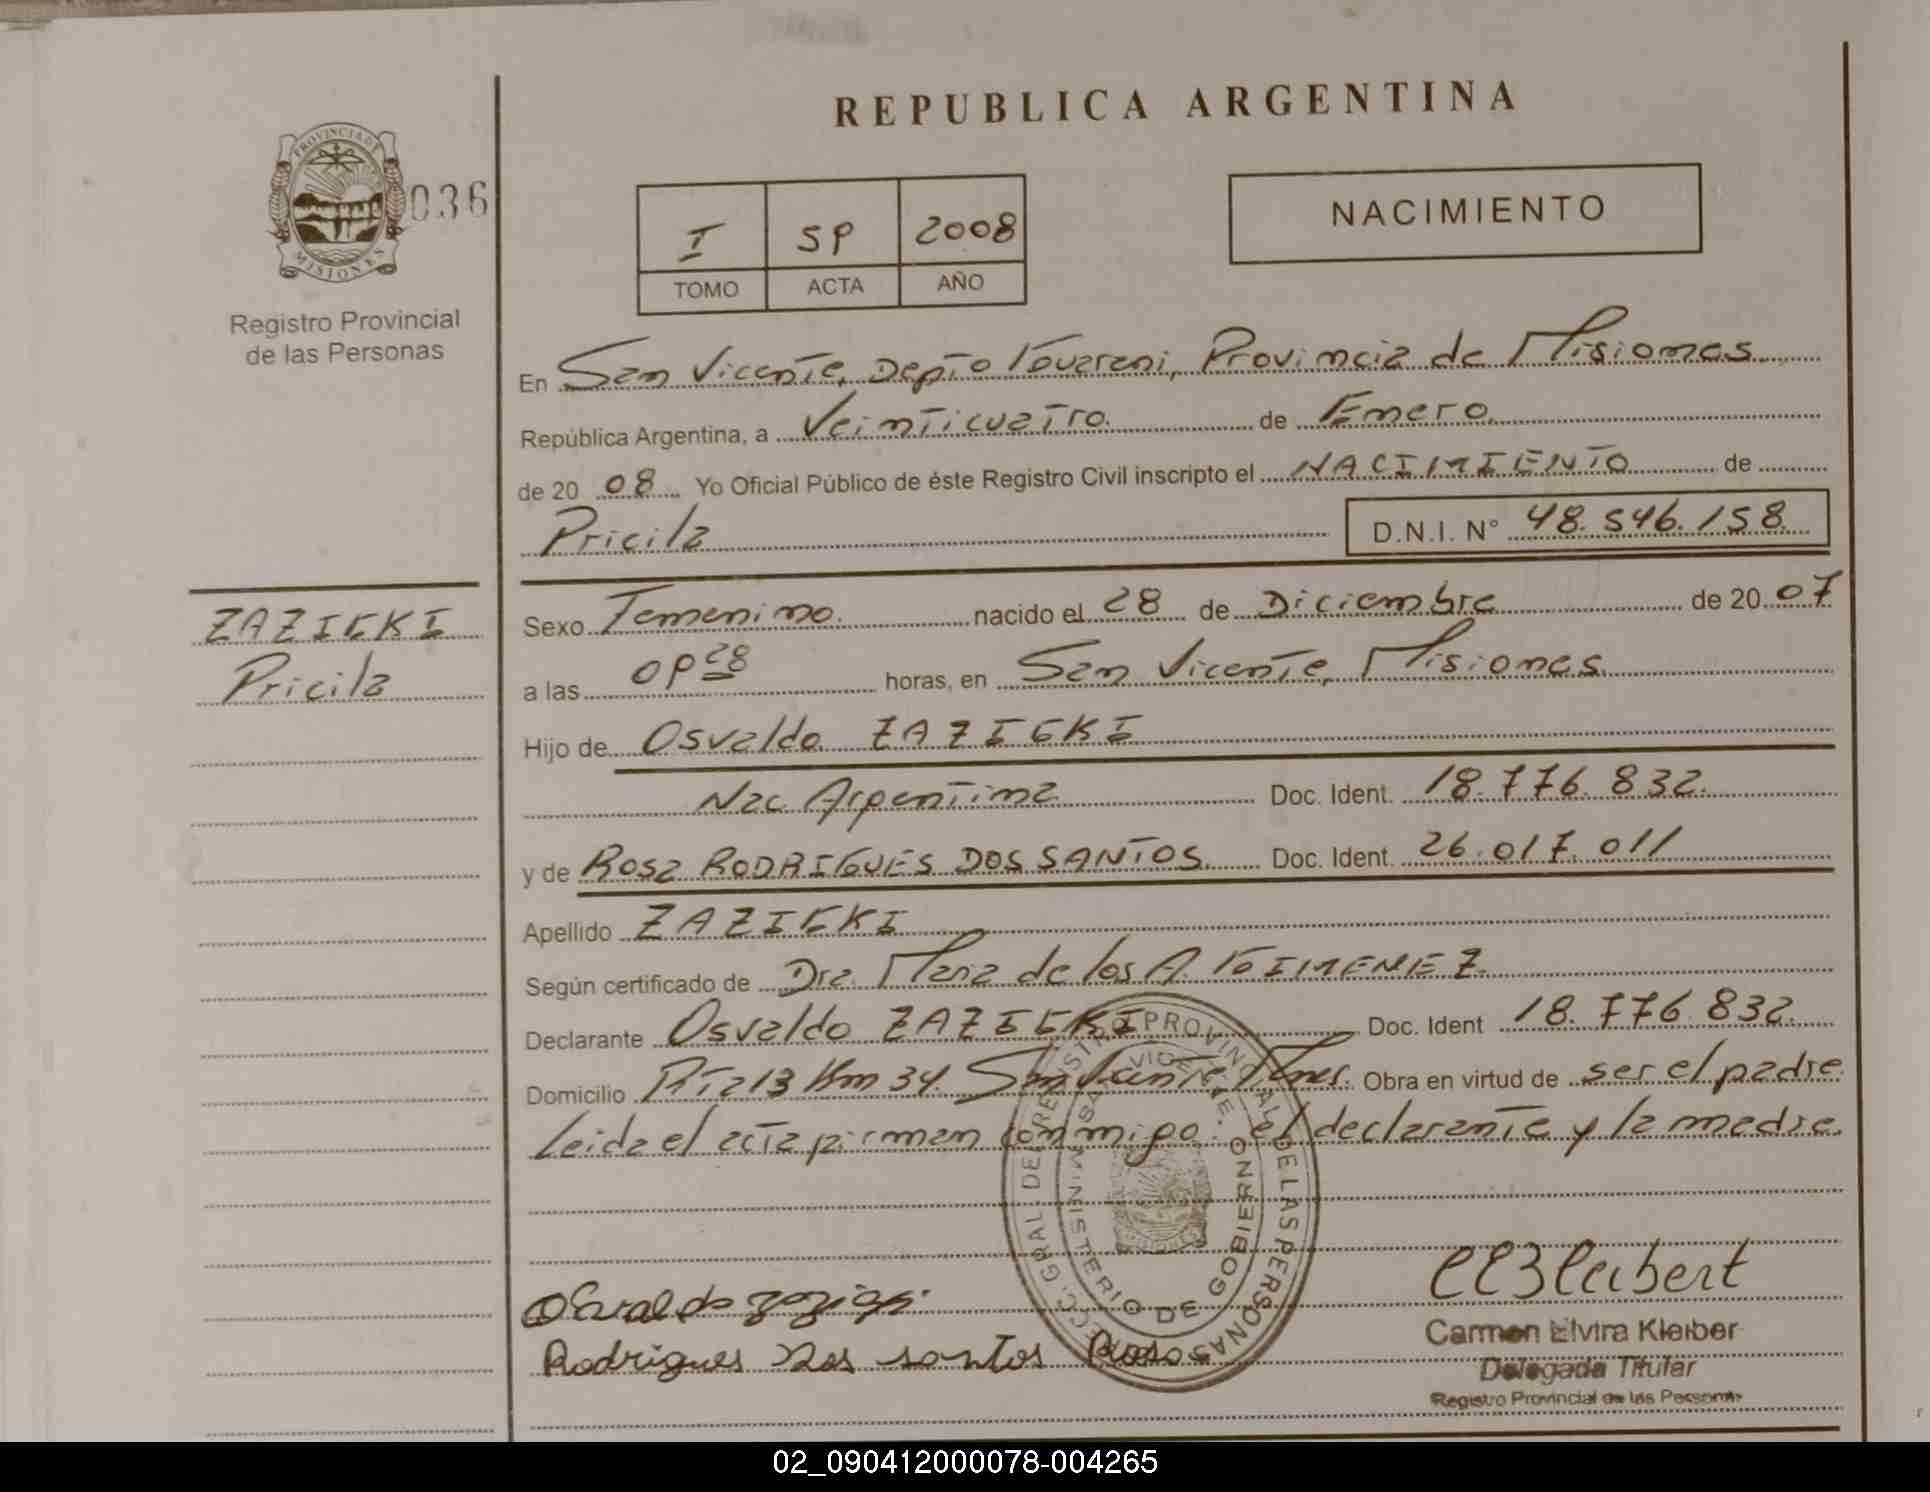 REPUBLICA ARGENTINA
PROVINCIA DE
MISIONES
036
Registro Provincial
de las Personas
I 59 2008
TOMO ACTA AÑO
NACIMIENTO
En San Vicente, Depto Guarani, Provincia de Misiones
República Argentina, a Veinticuatro de Enero
de 20 08 Yo Oficial Público de éste Registro Civil inscripto el NACIMIENTO de
Pricila D.N.I. N° 48.546.158
ZAZIEKI
Pricila
Sexo Femenino. nacido el 28 de Diciembre de 20 07
a las 09 28 horas, en San Vicente, Misiones
Hijo de Osvaldo ZAZIEKI
Nac Argentina Doc. Ident. 18.776.832.
y de Rosa RODRIGUES DOS SANTOS Doc. Ident. 26.017.011
Apellido ZAZIEKI
Según certificado de Dra. Maria de los A. GIMENEZ
Declarante Osvaldo ZAZIEKI Doc. Ident 18.776.832.
Domicilio Rta 13 Km 34. San Vicente, Mnes. Obra en virtud de ser el padre
Leida el acta firman conmigo: el declarante y la madre.
DIRECC. GRAL DE REGISTRO PROVINCIAL DE LAS PERSONAS
SAN VICENTE
MINISTERIO DE GOBIERNO
Rodrigues Dos santos Rosa
Carmen Elvira Kleiber
Delegada Titular
Registro Provincial de las Personas
02_090412000078-004265